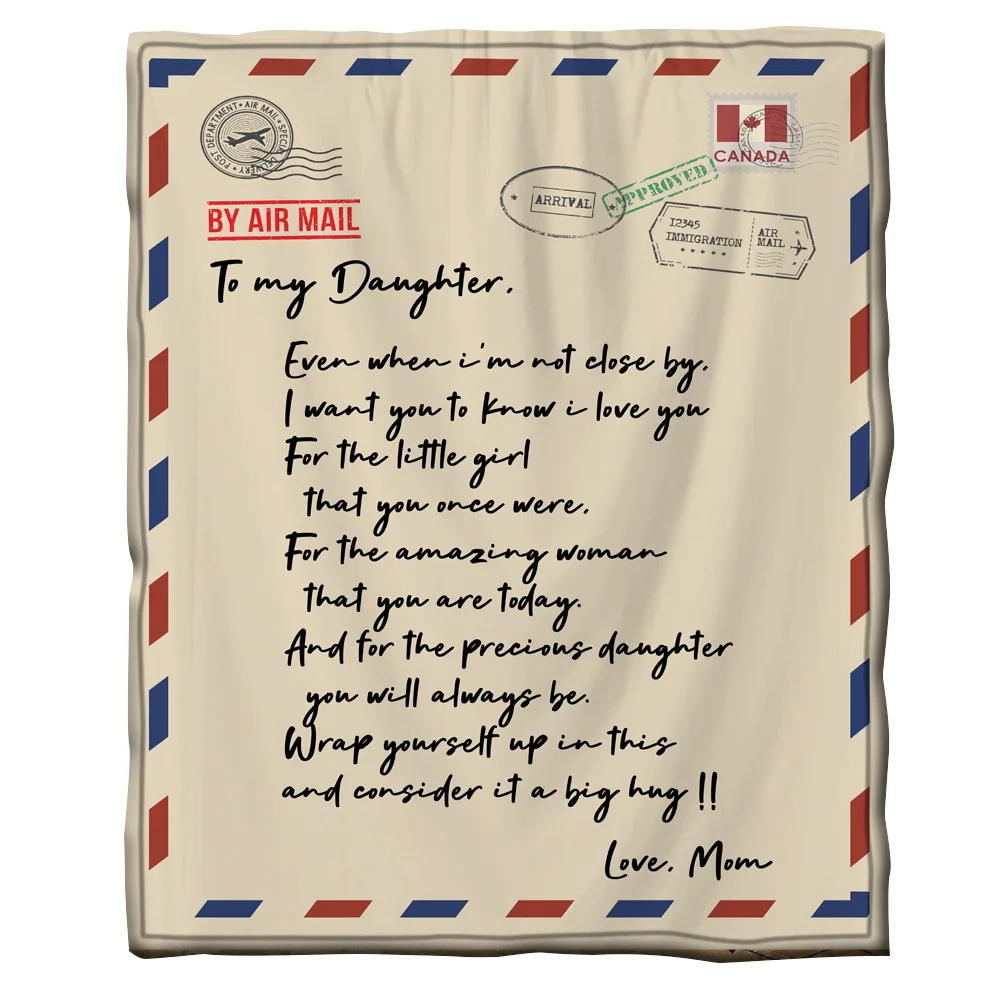 POST DEPARTMENT • AIR MAIL • SPECIAL DELIVERY •
CANADA
ARRIVAL
APPROVED
BY AIR MAIL
12345
IMMIGRATION
AIR
MAIL
To my Daughter,
Even when i'm not close by.
I want you to know i love you
For the little girl
that you once were.
For the amazing woman
that you are today.
And for the precious daughter
you will always be.
Wrap yourself up in this
and consider it a big hug !!
Love, Mom